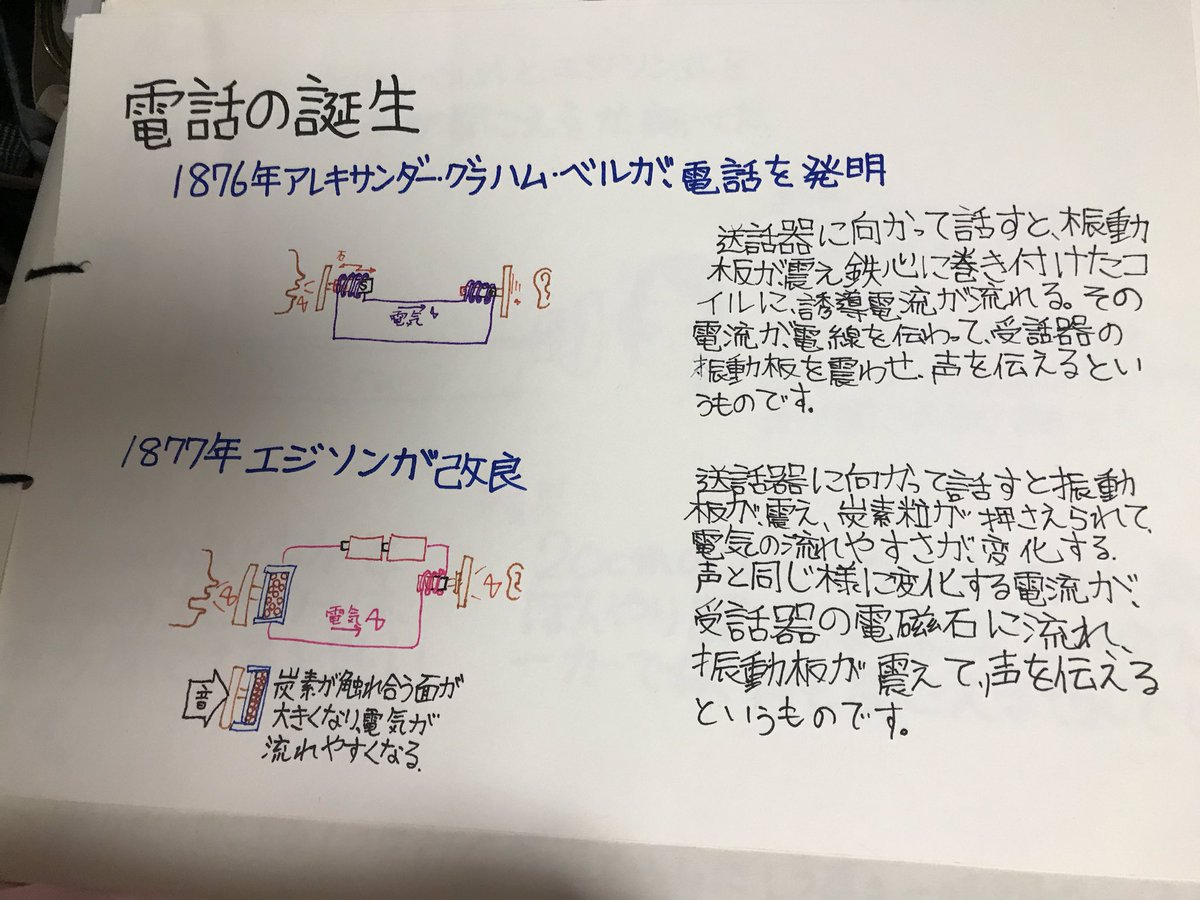 電話の誕生
1876年アレキサンダー・グラハム・ベルが、電話を発明
送話器に向かって話すと、振動
板が、震え鉄心に巻き付けたコ
イルに、誘導電流が流れる。その
電流が、電線を伝わって、受話器の
振動板を震わせ、声を伝えるとい
うものです。
電気
1877年エジソンが改良
送話器に向かって話すと振動
板が、震え、炭素粒が押さえられて、
電気の流れやすさが、変化する。
声と同じ様に変化する電流が、
受話器の電磁石に流れ、
振動板が震えて、声を伝える
というものです。
電気
音
炭素が触れ合う面が
大きくなり、電気が
流れやすくなる。